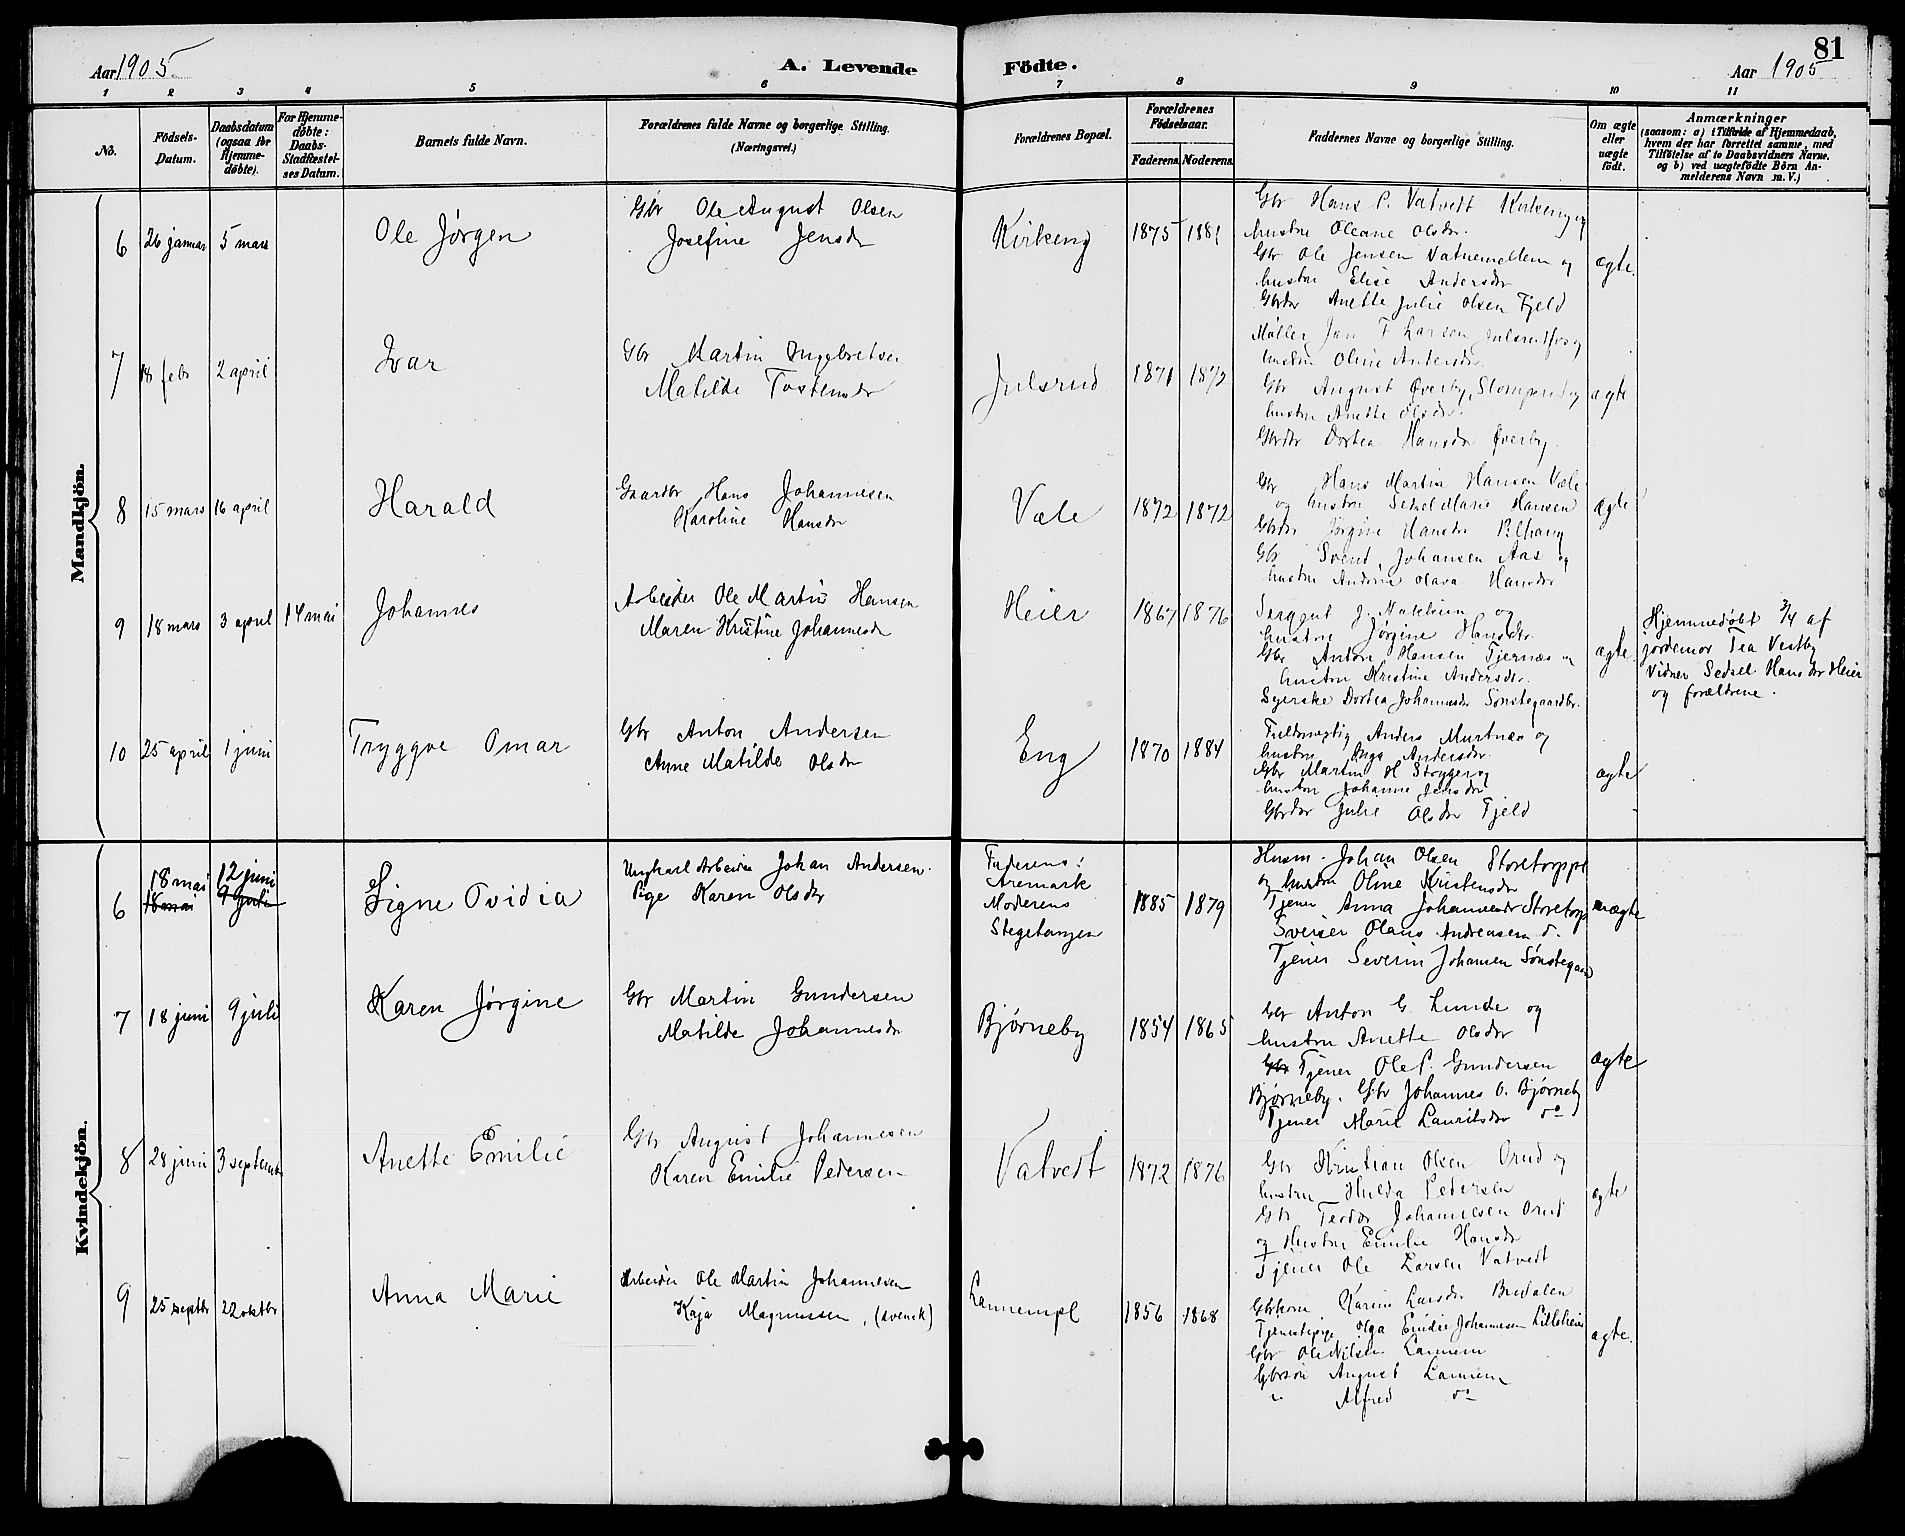 Aar 1905.
A. Levende Födte.
Aar 1905
81
1 2 3 4 5 6 7 8 9 10 11
No.
Födsels-Datum.
Daabsdatum (ogsaa for Hjemme-döbte).
For Hjemme-döbte: Daabs-Stadfæstel-ses Datum.
Barnets fulde Navn.
Forældrenes fulde Navne og borgerlige Stilling. (Næringsvei.)
Forældrenes Bopæl.
Forældrenes Födselsaar.
Faderens. Moderens.
Faddernes Navne og borgerlige Stilling.
Om ægte eller uægte födt.
Anmærkninger
(saasom: a) i Tilfælde af Hjemmedaab,
hvem der har forrettet samme, med
Tilföielse af to Daabsvidners Navne.
og b) ved uægtefödte Börn An-
melderens Navn m. V.)
Mandkjön.
6 26 januar 5 mars
Ole Jørgen
Gbr Ole August Olsen
Josefine Jensdr
Kirkeng
1875 1881
Gbr Hans P. Vatvedt Kirkeng og
hustru Oleane Olsdr.
Gbr Ole Jensen Vatnemellem og
hustru Elise Andersdr
Gbrdr Anette Julie Olsen Fjeld
ægte.
7 18 febr 2 april
Ivar
Gbr Martin Ingebretsen
Matilde Tostensdr
Julsrud
1871 1872
Møller Jan F Larsen Julsrudfos og
hustru Oline Andersdr.
Gbr August Øverby, Slomperud og
hustru Anette Olsdr.
Gbrdr Dortea Hansdr Øverby.
ægte
8 15 mars 16 april
Harald
Gaardbr Hans Johannesen
Karoline Hansdr
Væle
1872 1872
Gbr Hans Martin Hansen Væle
og hustru Sedsel Marie Hansen
Gbrdr Jørgine Hansdr
Gbr Svend Johansen Aas og
hustru Andrine Olava Hansdr
ægte
9 18 mars 3 april 14 mai
Johannes
Arbeider Ole Martin Hansen
Maren Kristine Johannesdr
Heier
1867 1876
Sergent J. og
hustru Jørgine Hansdr.
Gbr Anton Hansen Tjernæs og
hustru Kristine Andersdr.
Syerske Dortea Johannesdr Sønstegaardbr.
ægte
Hjemmedøbt 3/4 af
jordemor Tea Vestby
Vidner Sedsel Hansdr Heier
og forældrene.
10 25 april 1 juni
Tryggve Omar
Gbr Anton Andersen
Anne Matilde Olsdr
Eng
1870 1884
Fuldmægtig Anders Murtnæs og
hustru Inga Andersdr.
Gbr Martin H og
hustru Johanne Jensdr
Gbrdr Julie Olsdr Fjeld
ægte
Kvindekjön.
6 18 mai 12 juni
18 mai 9 juli
Signe Ovidia
Ungkarl Arbeider Johan Andersen.
Pige Karen Olsdr
Faderens:
Aremark
Moderens
Stegetangen
1885 1879
Husm. Johan Olsen Storetorppl
og hustru Oline Kristensdr
Tjener Anna Johannesdr Storetorp
Sveiser Olaus Andreasen do.
Tjener Severin Johansen Sønstegaard
uægte
7 18 juni 9 juli
Karen Jørgine
Gbr Martin Gundersen
Matilde Johannesdr
Bjørneby
1854 1865
Gbr Anton G. Lunde og
hustru Anette Olsdr
Gbr Tjener Ole P. Gundersen
Bjørneby. Gbr Johannes O. Bjørneby
Tjener Marie Lauritsdr do
ægte
8 28 juni 3 september
Anette Emilie
Gbr August Johannesen
Karen Emilie Pedersen
Vatvedt
1872 1876
Gbr Kristian Olsen Orud og
hustru Hulda Pedersen
Gbr Teodor Johannesen Orud
og Hustru Emilie Hansdr
Tjener Ole Larsen Vatvedt
ægte
9 25 septbr 22 oktbr
Anna Marie
Arbeider Ole Martin Johannesen
Kaja Magnussen, (svensk)
Lannempl
1856 1868
Gbrkone Karine Larsdr Bredalen
Tjenestepige Olga Emilie Johannesen Lilleheier
Gbr Ole Nilsen Lannem
Gbrsøn August Lannem
" Alfred do
ægte.